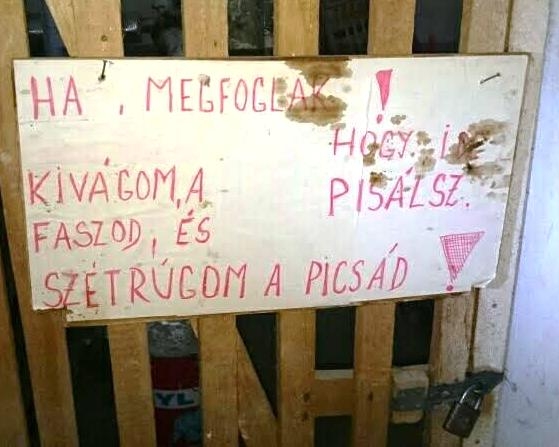 HA , MEGFOGLAK !
HOGY, I
KIVÁGOM, A PISÁLSZ.
FASZOD, ÉS
SZÉTRÚGOM A PICSÁD !
YL